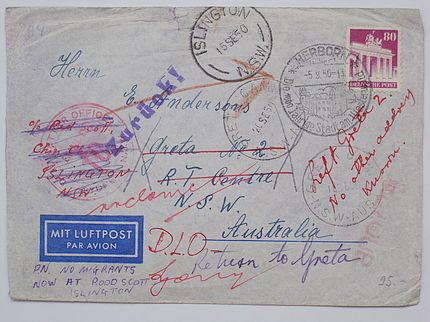 ISLINGTON
15SE50
N.S.W.
HERBORN
-5.9.50-
80
DEUTSCHE POST
Herrn
E. Andersons
Zurück!
c/o Rod Scott
ISLINGTON
N.S.W.
Greta No 2
R.T. Centre
N.S.W.
Australia
Left Greta 2.
No other address
known.
N.S.W-AUS
MIT LUFTPOST
PAR AVION
D.L.O
Return to Greta
P.N. NO MIGRANTS
NOW AT ROOD SCOTT
ISLINGTON
95.-